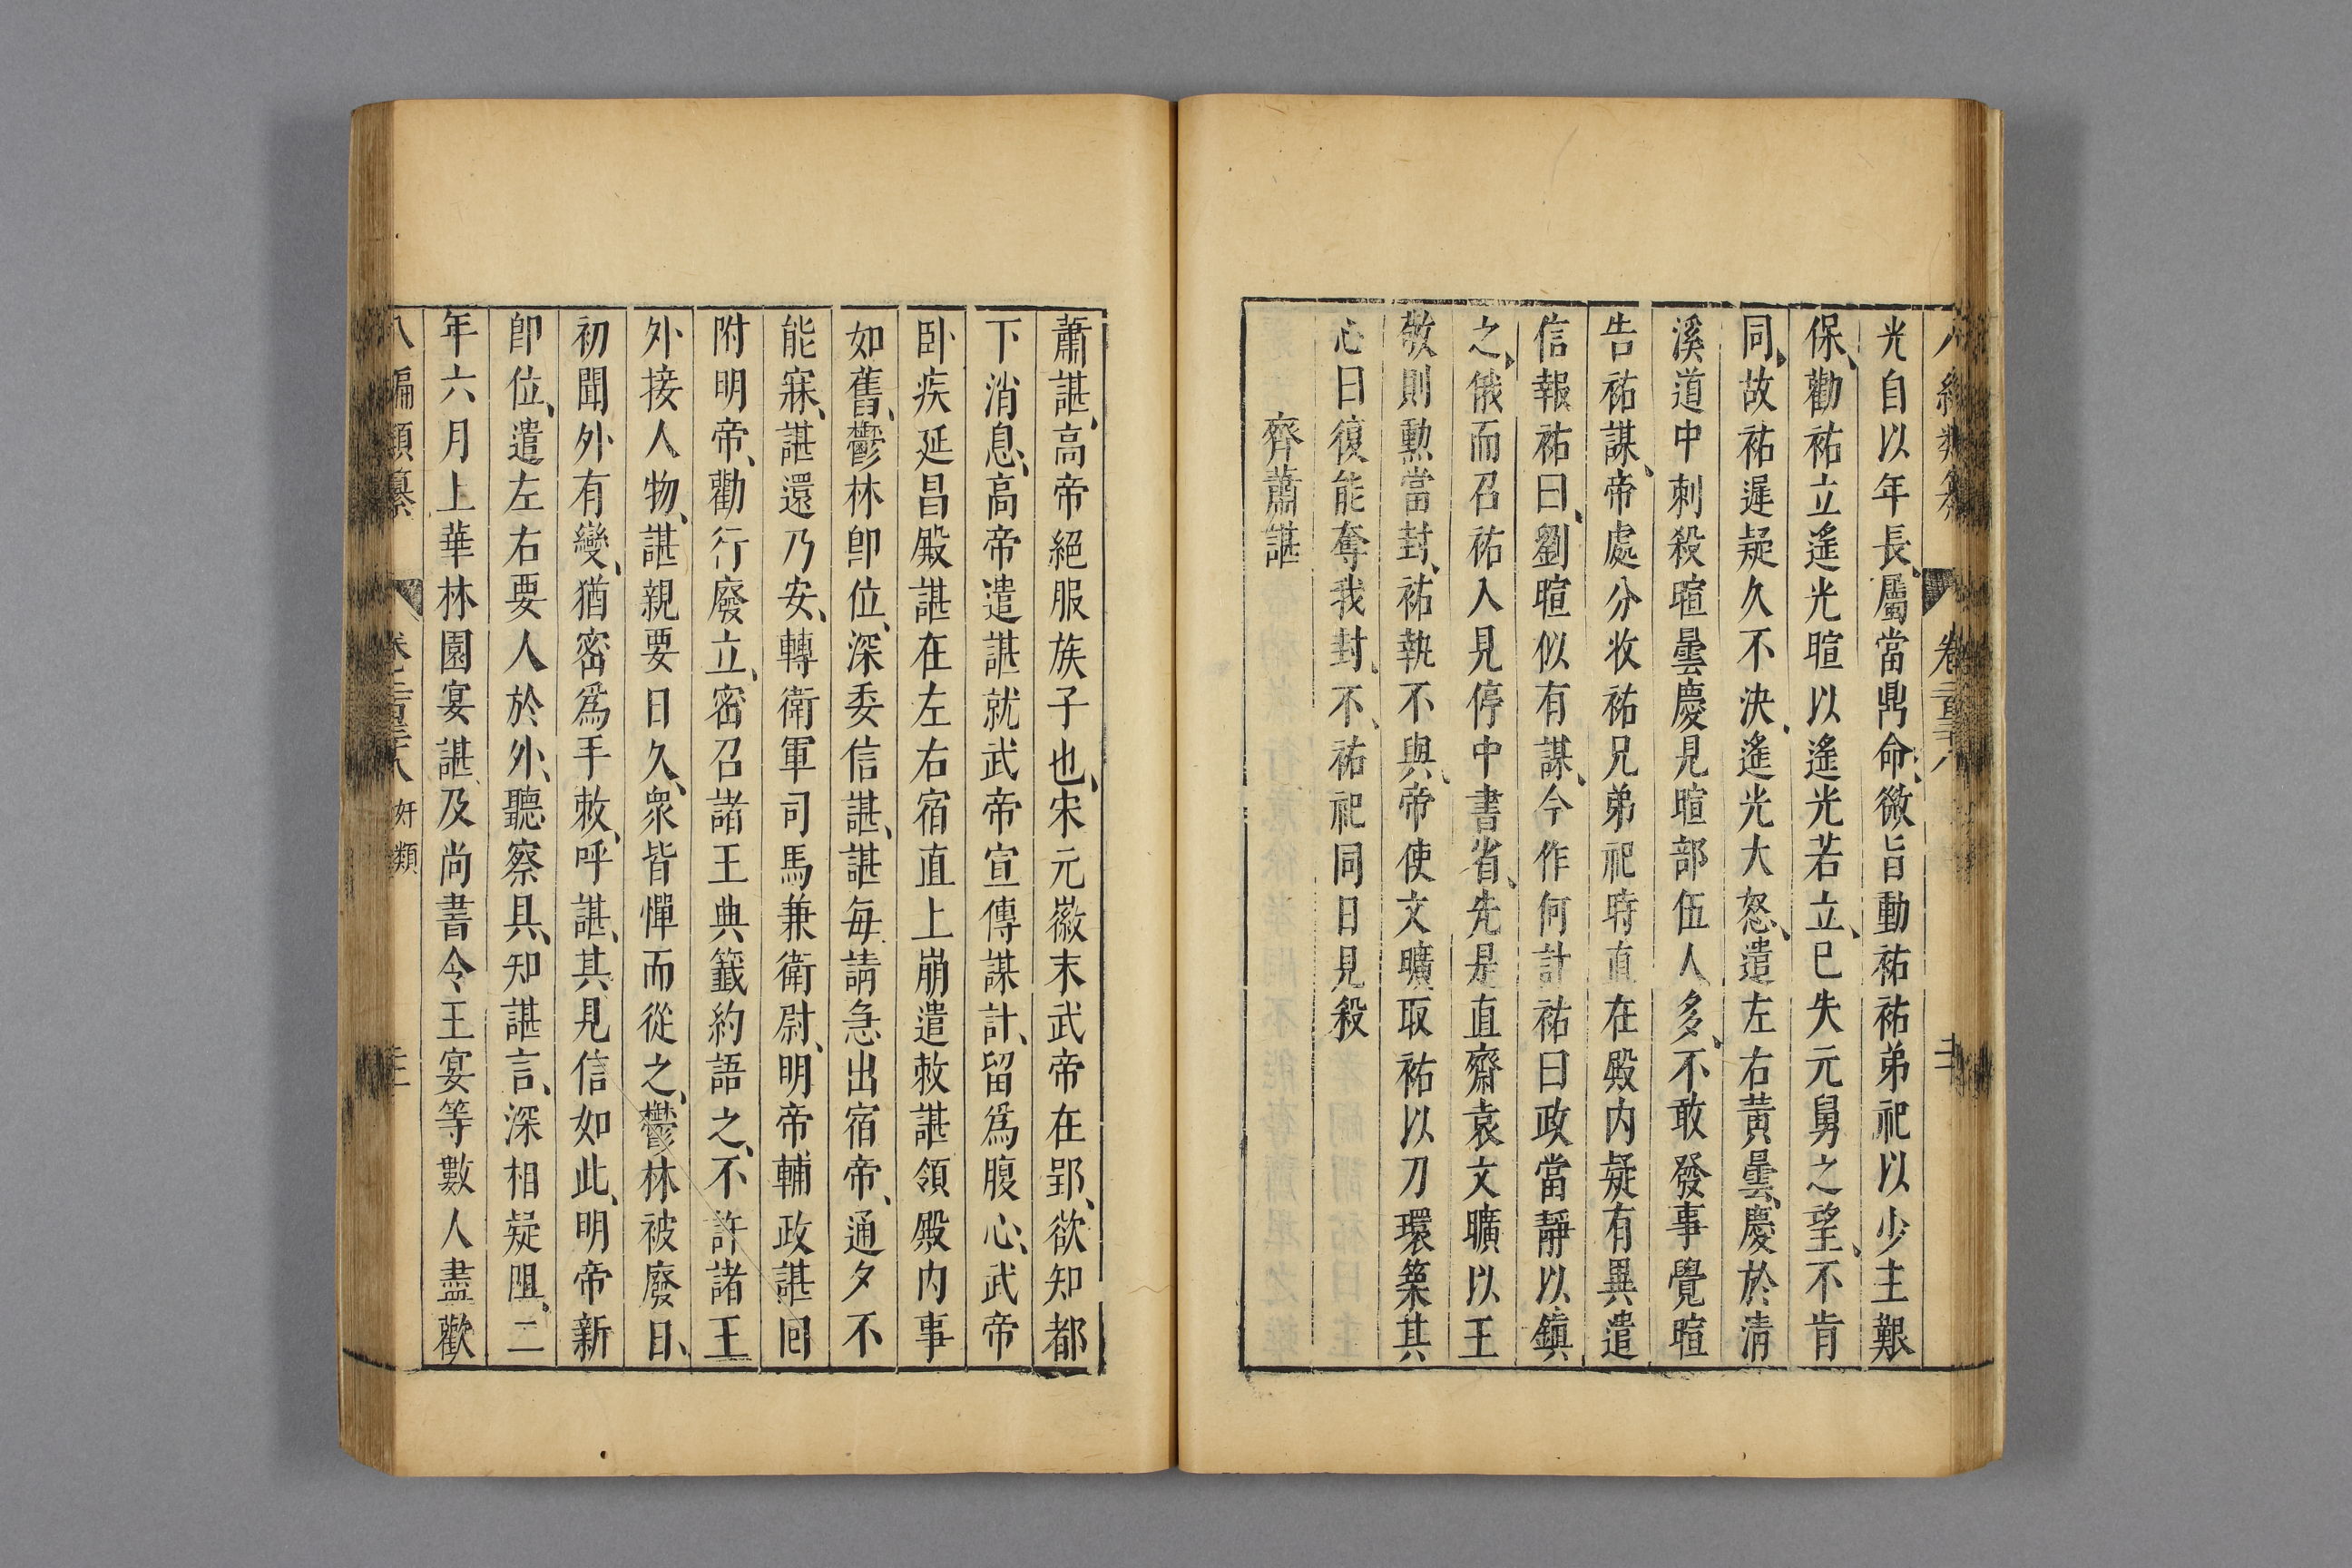 光自以年長、屬當鼎命、微旨動祐祐弟祀以少主艱
保、勸祐立遙光暄以遙光若立、已失元舅之望、不肯
同、故祐遲疑久不決、遙光大怒、遣左右黃曇、慶於清
溪道中刺殺暄曇慶見暄部伍人多、不敢發事覺暄
告祐謀、帝處分收祐兄弟祀時直在殿內疑有異遣
信報祐曰、劉暄似有謀、今作何計祐曰政當靜以鎮
之、俄而召祐入見停中書省、先是直齋袁文曠以王
敬則勳當封、祐執不與、帝使文曠取祐以刀環築其
心曰復能奪我封、不、祐祀同日見殺
齊蕭諶
蕭諶、高帝絕服族子也、宋元徽末武帝在郢、欲知都
下消息、高帝遣諶就武帝宣傳謀計、留爲腹心、武帝
臥疾延昌殿諶在左右宿直上崩遣敕諶領殿內事
如舊、鬱林卽位、深委信諶、諶每請急出宿帝、通夕不
能寐、諶還乃安、轉衛軍司馬兼衛尉、明帝輔政諶回
附明帝、勸行廢立、密召諸王典籤約語之、不許諸王
外接人物、諶親要日久、衆皆憚而從之、鬱林被廢日、
初聞外有變、猶密爲手敕、呼諶、其見信如此、明帝新
卽位、遣左右要人於外、聽察具、知諶言、深相疑阻、二
年六月上華林園宴諶及尚書令王宴等數人盡歡
八編類纂 奸類